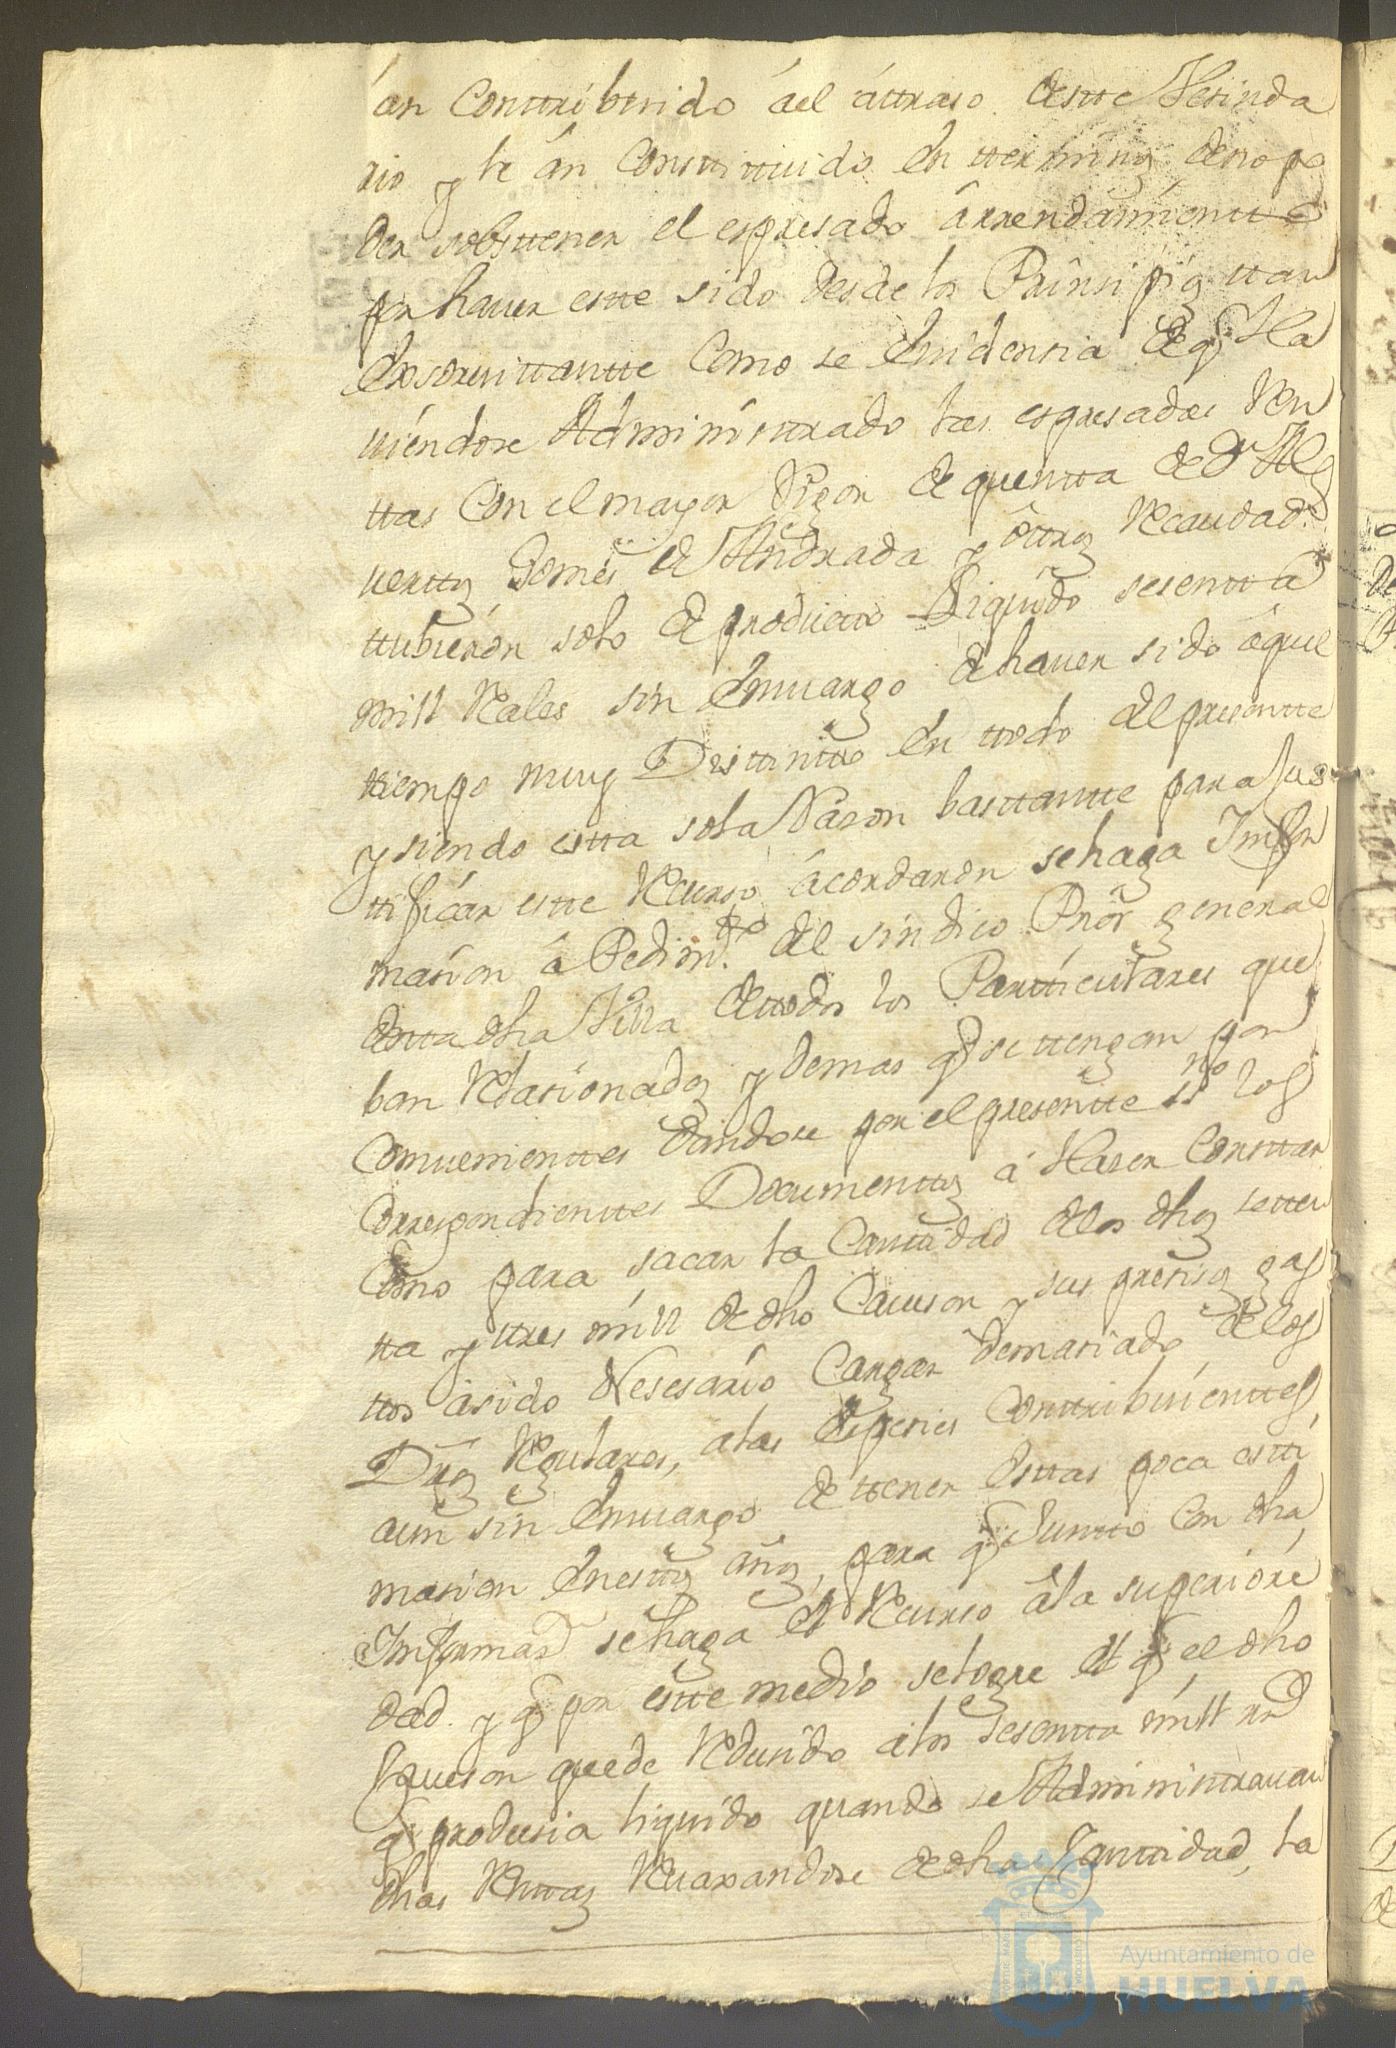 án Conttribuido áel áttraso destte Vesinda
rio y le án Consttittuido En tterminos de no po
der sobsttener el espresado árrendamientto
por haver estte sido desde los Prinsipios ttan
Exsorvittantte Como se Evidensia de q.e Ha
viéndose Administtrado las espresadas Ren
ttas Con el mayor Rigor de quentta de D.n Al
verttos Gomes de Andrada y ôttros Recaudad.s
ttubierón solo de productto Liquido sesentta
mill Reales sin Emvargo de haver sido áquel
ttiempo muy Disttintto En ttodo del presentte
y siendo estta sola Razon basttantte para Jus
ttificar estte Recurso ácordarón se haga Imfor
masion á Pedim.tto del sindico Pror general
destta dha Villa de ttodos los Partticulares que
ban Relasionados y demas q.e se ttengan por
Comvenienttes dandose por el presentte ss.no los
Correspondienttes Documenttos á Haser Consttar
Como para sacar la Canttidad de los dhos setten
tta y ttres mill de dho Caveson y sus presisos gas
ttos ásido Nesesário Cargar demasiado de los
Dros Regulares, a las Espesies Conttribuienttes,
aun sin Emvargo de ttener Esttas poca estti
masion En esttos años, para q.e Juntto Con dha
Imformas.n se haga el Recurso á la superiori
dad. y q.e por estte medio se logre el q.e el dho
Caveson quede Redusido a los sesentta mill rr.s
q.e produsia liquido quando se Administtravan
dhas Renttas Revaxandose de dha Canttidad, la
Ayuntamiento de
HUELVA